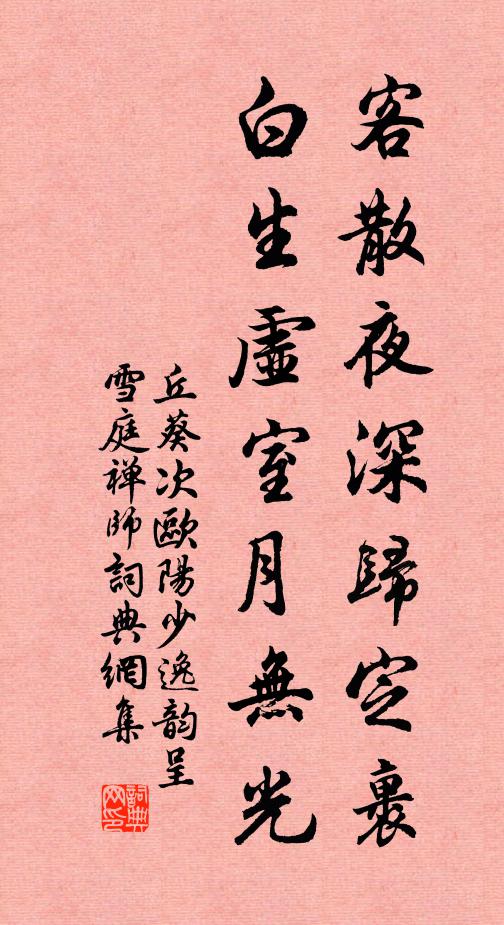 客散夜深歸定裏
白生虛室月無光
丘葵次歐陽少逸韵呈
雪庭禅師詞典網集
詞典
网印